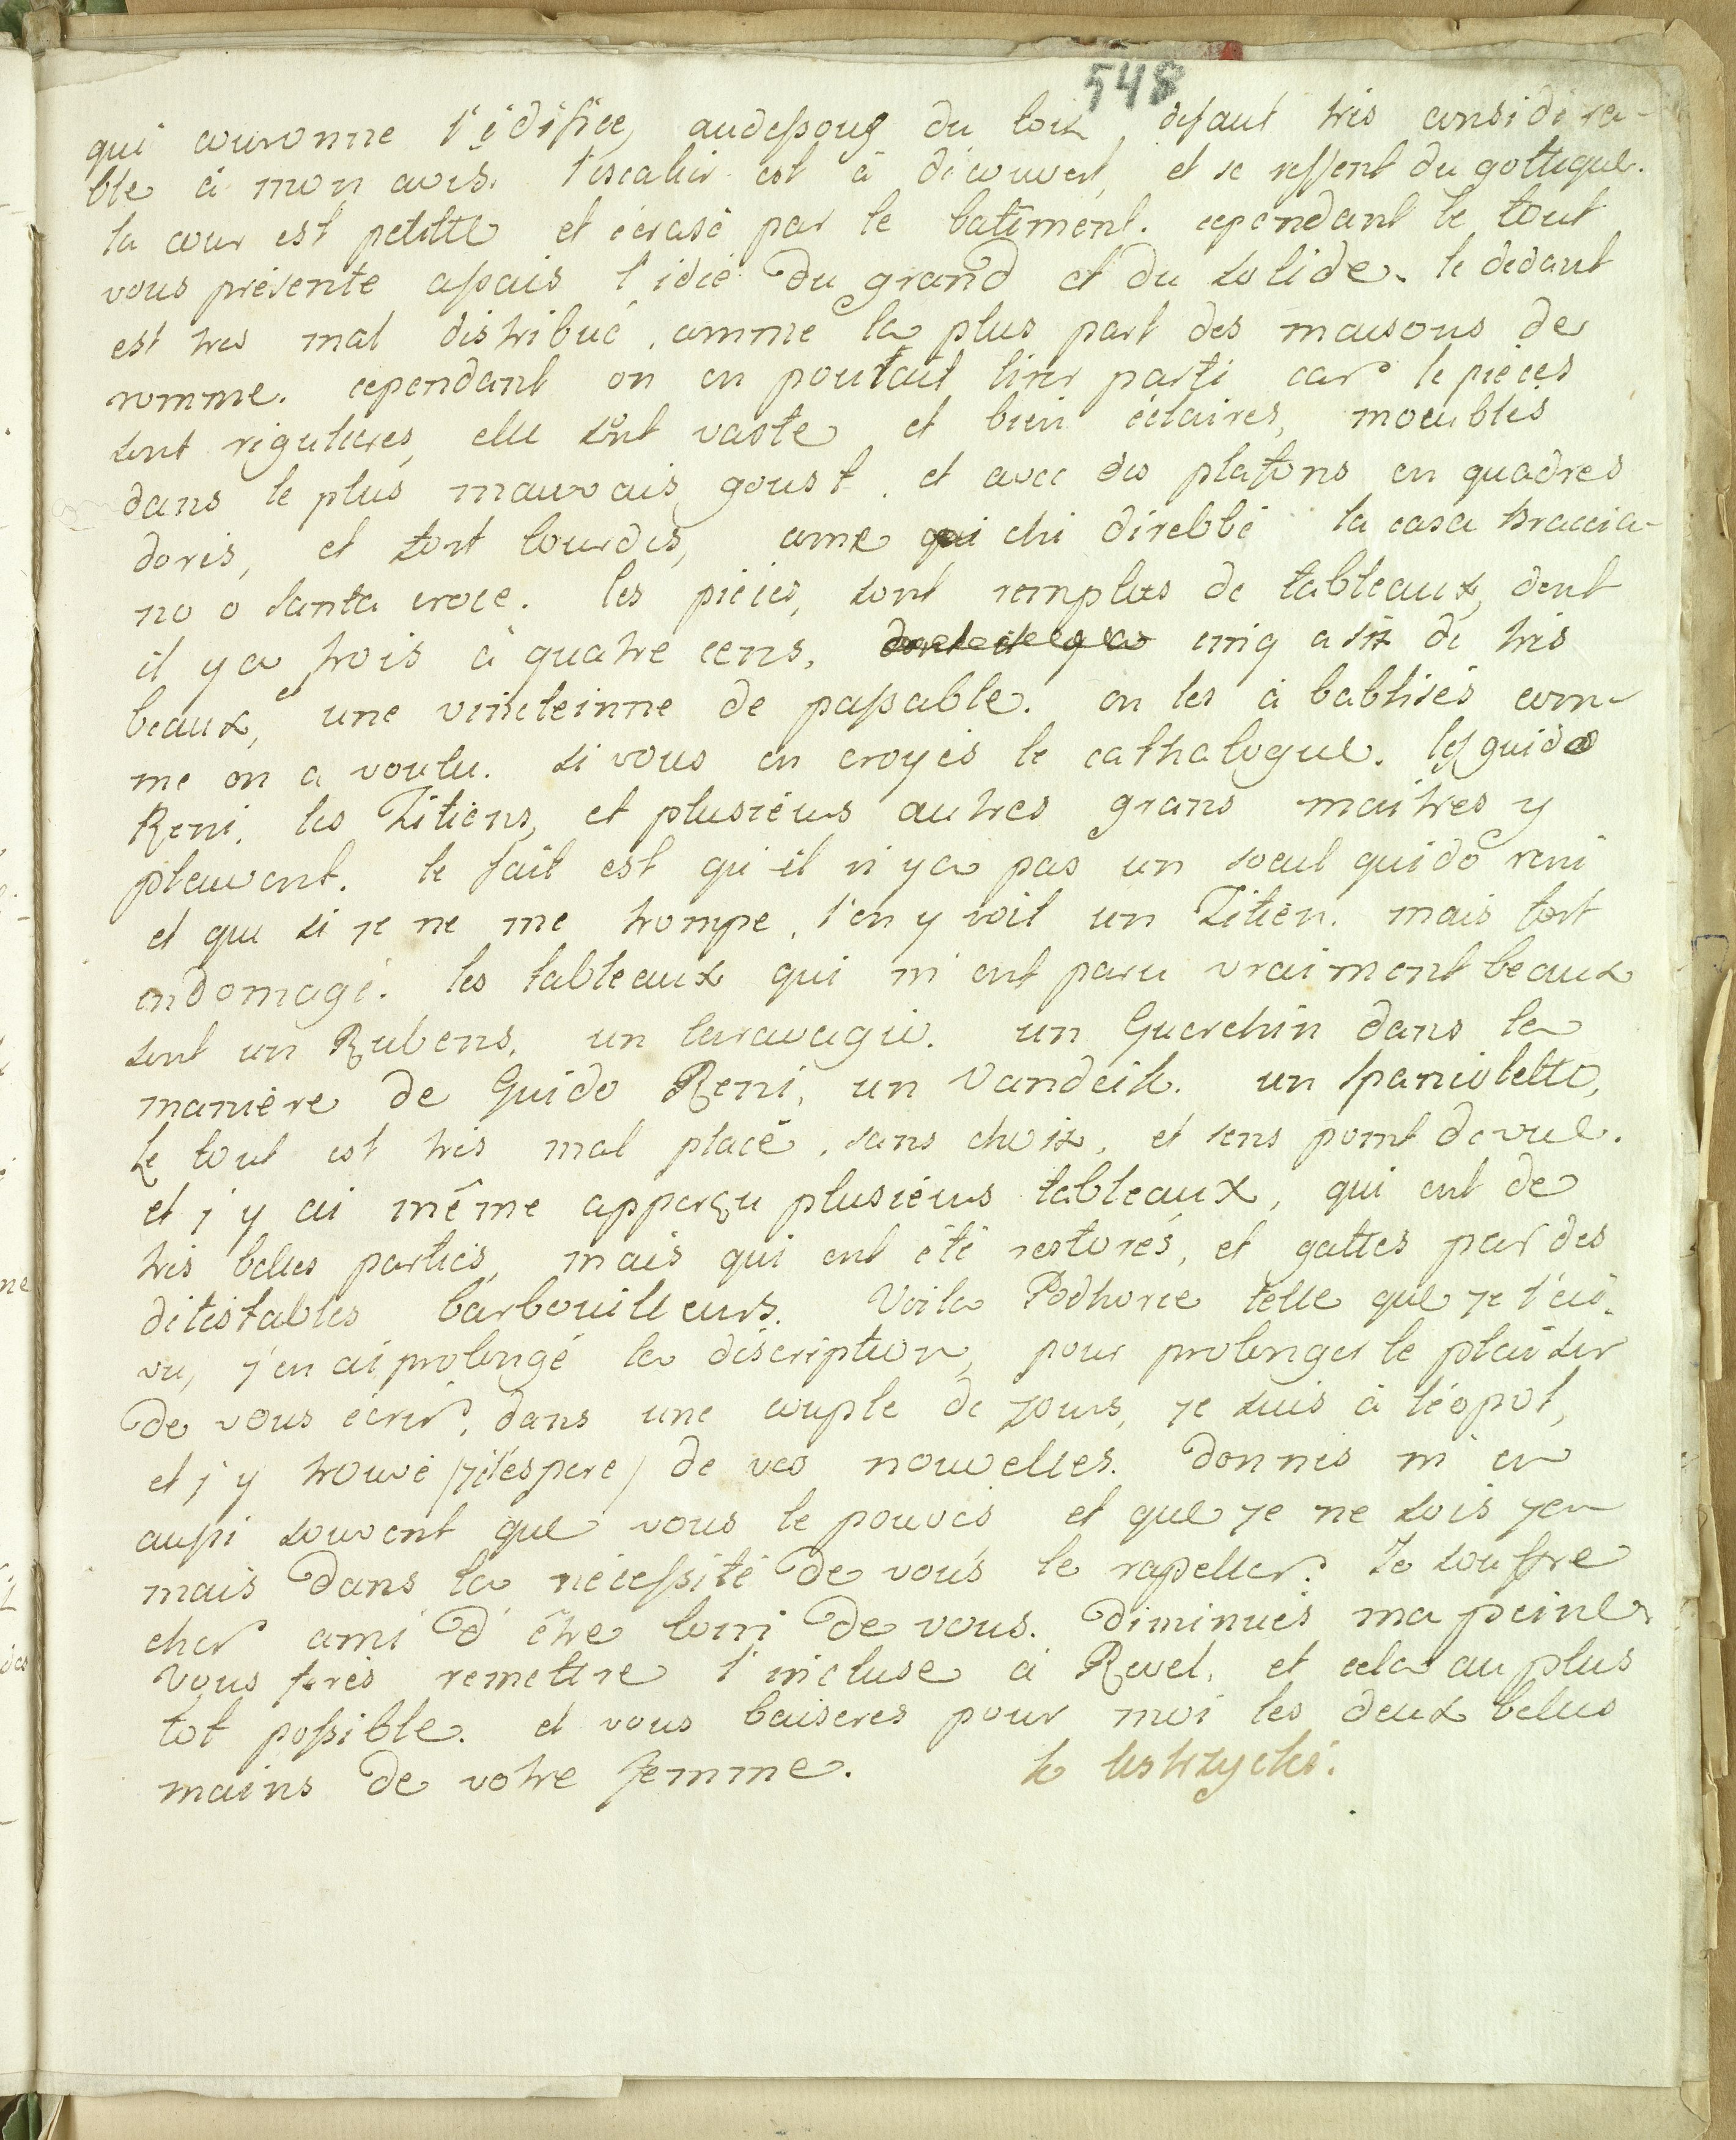 548
qui couronne l'édifice, audessous du toit, defaut très considéra-
ble à mon avis. l'escalier est à découvert, et se ressent du gottique.
la cour est petitte et écrasé par le batiment. cependant le tout
vous présente assais l'idée du grand et du solide. le dedant
est tres mal distribué, comme la plus part des maisons de
romme. cependant on en poutait tirer parti car le pièces
sont régulieres, elle sont vaste et bien éclaires, moeublés
dans le plus mauvais goust, et avec des plafons en quadres
dorés, et fort lourdes, come qui chi direbbe la casa braccia-
no o santa croce. les pièces, sont remplies de tableaux, dont
il y a trois à quatre cens, cinq a six de très
beaux, une vinteinne de passable. on les à babtisés com-
me on a voulu. si vous en croyés le cathalogue. les guido
Reni, les Titiens, et plusiéurs autres grans maitres y
pleuvent. le fait est qu'il n'y a pas un soeul guido reni
et que si je ne me trompe, l'on y voit un Titien. mais fort
endomagé. les tableaux qui m'ont paru vraiment beaux
sont un Rubens, un Caravagio. un Guerchin dans la
manière de Guido Reni, un Vandeik. un Spanioletto,
Le tout est très mal placé, sans choix, et sens point de vue.
et j'y ai même apperçu plusiéurs tableaux, qui ont de
très belles parties, mais qui ont été restorés, et gattes par des
détéstables barbouilleurs. Voila Podhorce telle que je l'ai
vu, j'en ai prolongé la déscription, pour prolonger le plaisir
de vous ecrir. dans une couple de jours, je suis à léopol,
et j'y trouvé /jé l'espere/ de vos nouvelles. donnés m'en
aussi souvent que vous le pouvés et que je ne sois ja-
mais dans la nécessité de vous le rapeller. Je souffre
cher ami d'être loin de vous. diminués ma peine
Vous ferés remettre l'incluse à Revel, et cela au plus
tot possible. et vous baiseres pour moi les deux belles
mains de votre femme. le